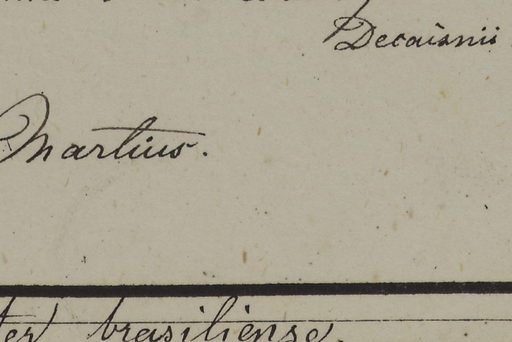 Decaisnii
Martius.
brasiliense.